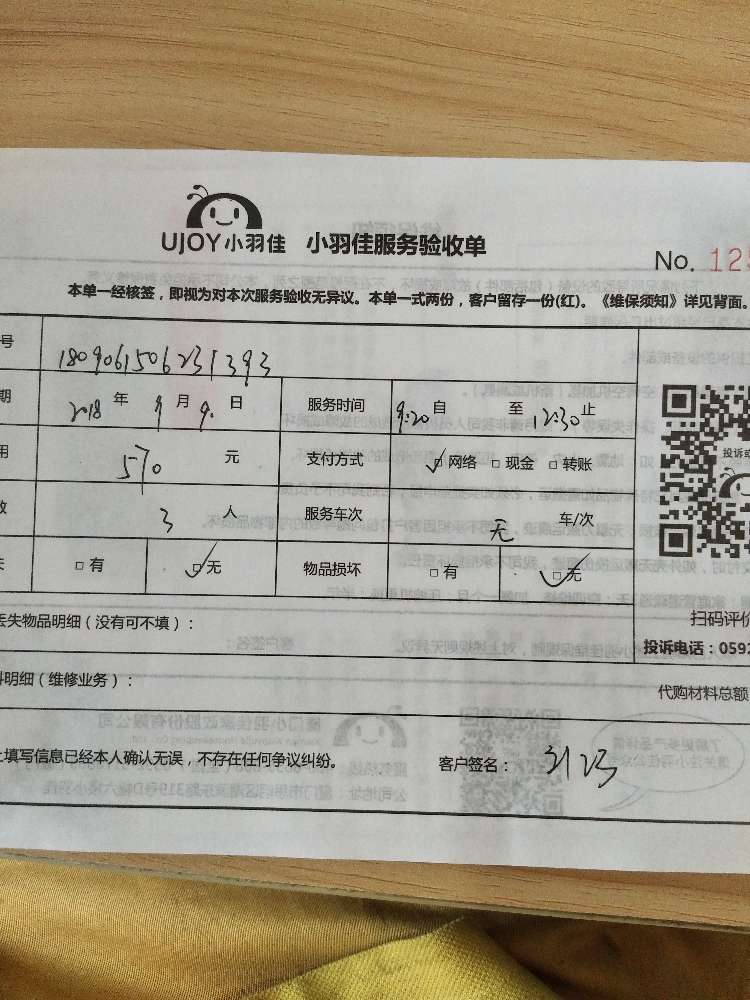 UJOY小羽佳 小羽佳服务验收单
No. 125
本单一经核签，即视为对本次服务验收无异议。本单一式两份，客户留存一份(红)。《维保须知》详见背面。
号 1809061506231393
期 2018 年 9 月 9. 日 服务时间 9:20 自 至 12:30 止
用 570 元 支付方式 网络 现金 转账
数 3 人 服务车次 无 车/次
失 有 无 物品损坏 有 无
投诉或
扫码评价
丢失物品明细（没有可不填）：
投诉电话：0592
料明细（维修业务）：
代购材料总额
上填写信息已经本人确认无误，不存在任何争议纠纷。 客户签名：